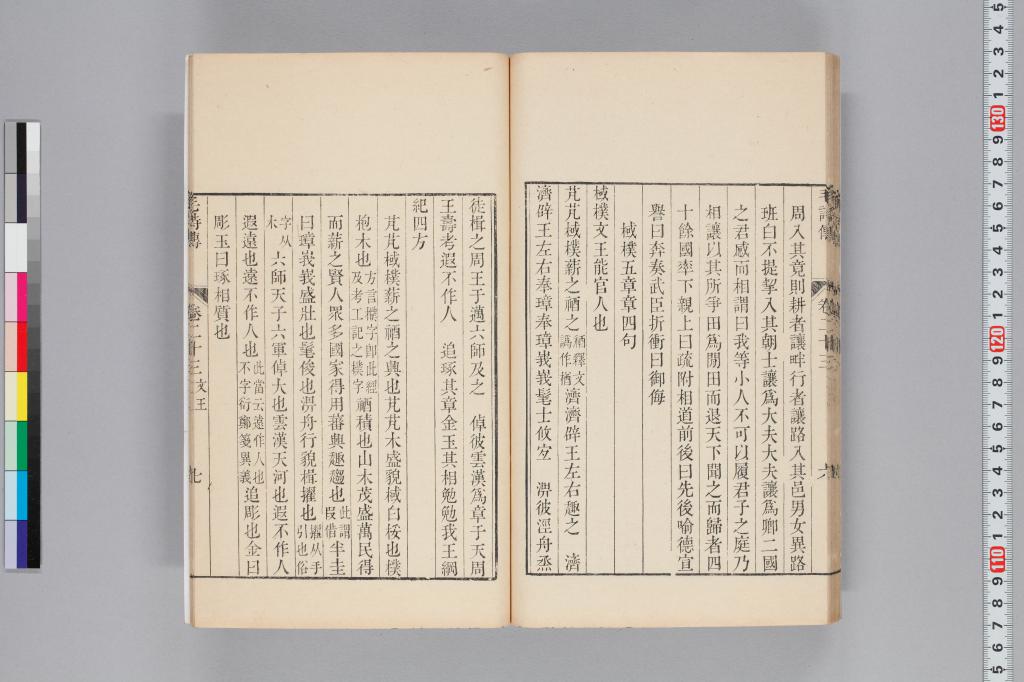 周入其竟則耕者讓畔行者讓路入其邑男女異路
班白不提挈入其朝士讓爲大夫大夫讓爲卿二國
之君感而相謂曰我等小人不可以履君子之庭乃
相讓以其所爭田爲閒田而退天下聞之而歸者四
十餘國率下親上曰疏附相道前後曰先後喻德宣
譽曰奔奏武臣折衝曰御侮
棫樸五章章四句
棫樸文王能官人也
芃芃棫樸薪之槱之槱釋文譌作楢濟濟辟王左右趣之 濟
濟辟王左右奉璋奉璋峩峩髦士攸宜 淠彼涇舟烝
徒楫之周王于邁六師及之 倬彼雲漢爲章于天周
王壽考遐不作人 追琢其章金玉其相勉勉我王綱
紀四方
芃芃棫樸薪之槱之興也芃芃木盛貌棫白桵也樸
枹木也方言樕字即此經及考工記之樸字槱積也山木茂盛萬民得
而薪之賢人眾多國家得用蕃興趣趨也此謂叚借半圭
曰璋峩峩盛壯也髦俊也淠舟行貌楫擢也擢从手引也俗
字从木六師天子六軍倬大也雲漢天河也遐不作人
遐遠也遠不作人也此當云遠作人也不字衍鄭箋異義追彫也金曰
彫玉曰琢相質也
毛詩傳 卷二十三 文王
毛詩傳 卷二十三